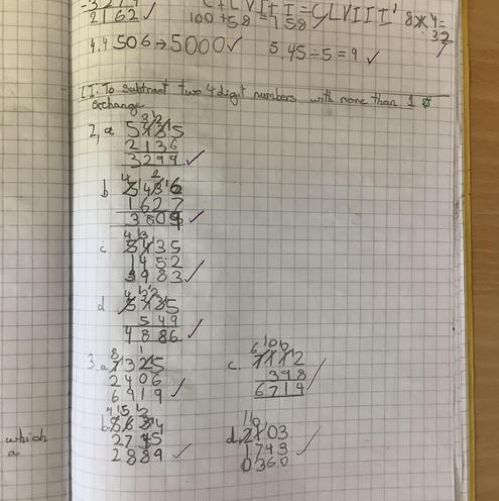 2162
100+58 = 158
8x4=
32
4.4506→5000
5.45÷5=9
LI: To subtract two 4 digit numbers with more than 1
exchange
2,a 5435
2136
3299
b
1627
3509
c 5435
1452
3983
d 5435
549
4886
3.a 9325
2406
6919
c. 7112
398
6714
b. 5634
2745
2889
d. 2103
1743
0360
which
a